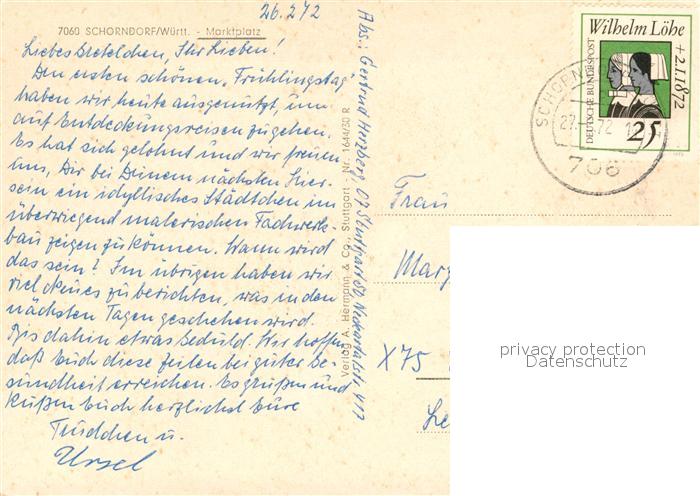 26.2.72
7060 SCHORNDORF/Württ. - Marktplatz
Liebes Gretelchen, Ihr Lieben!
Den ersten schönen "Frühlingstag"
haben wir heute ausgenützt um
auf Entdeckungsreisen zu gehen.
Es hat sich gelohnt und wir freuen
uns, Dir bei Deinem nächsten Hier-
sein ein idyllisches Städtchen im
überwiegend malerischen Fachwerk-
bau zeigen zu können. Wann wird
das sein? Im übrigen haben wir
viel Neues zu berichten, was in den
nächsten Tagen geschehen wird.
Bis dahin etwas Geduld. Wir hoffen
daß Euch diese Zeilen bei guter Ge-
sundheit erreichen. Es grüßen und
küßen Euch herzlichst Eure
Trudchen u.
Ursel
Verlag A. Hermann & Co., Stuttgart - Nr. 1644/30 R
Abs.: Gertrud Herzberg, 07 Stuttgart 50 Neckartalstr. 417
Wilhelm Löhe
+2.1.1872
DEUTSCHE BUNDESPOST
25
SCHORN
27. 72
706
Frau
Marg
X75
Le
privacy protection
Datenschutz